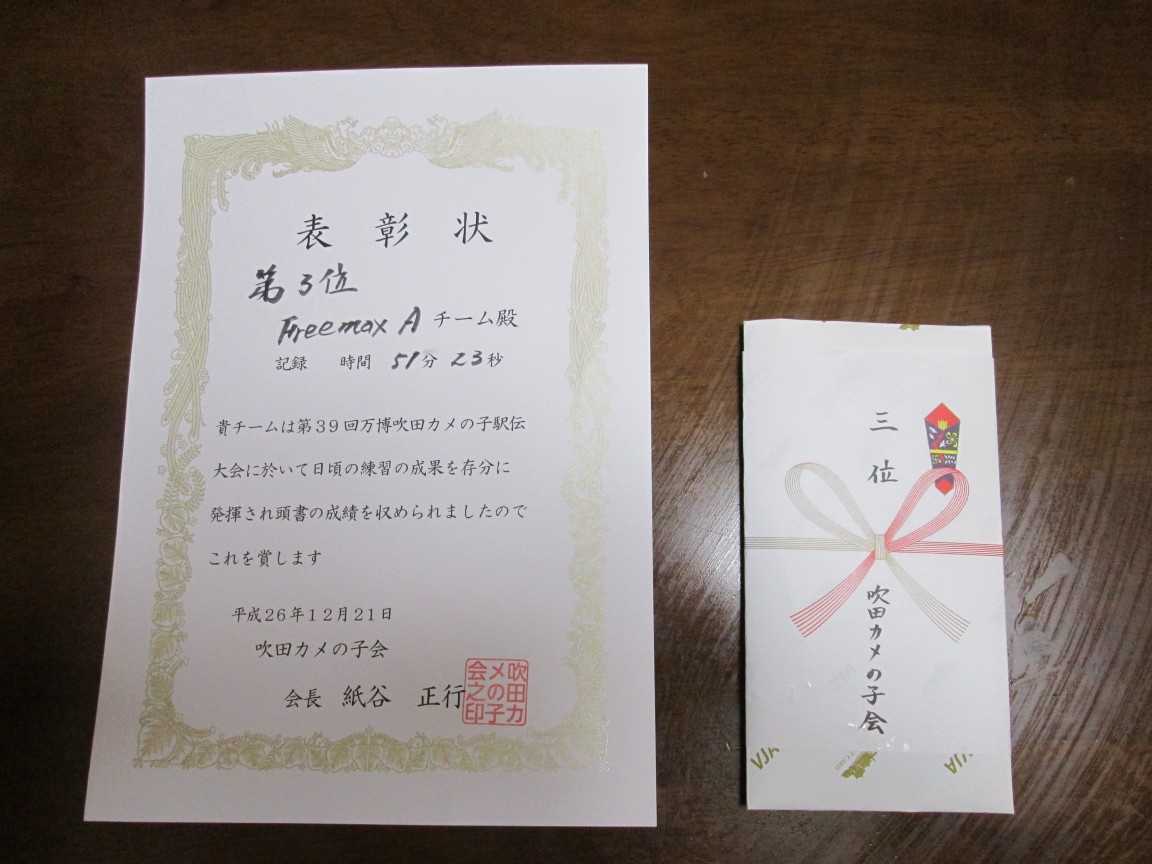 表彰状
第3位
Freemax A チーム殿
記録 時間 51分 23秒
貴チームは第39回万博吹田カメの子駅伝
大会に於いて日頃の練習の成果を存分に
発揮され頭書の成績を収められましたので
これを賞します
平成26年12月21日
吹田カメの子会
会長 紙谷 正行
吹田カ
メの子
会之印
三位
吹田カメの子会
VJA
VJA